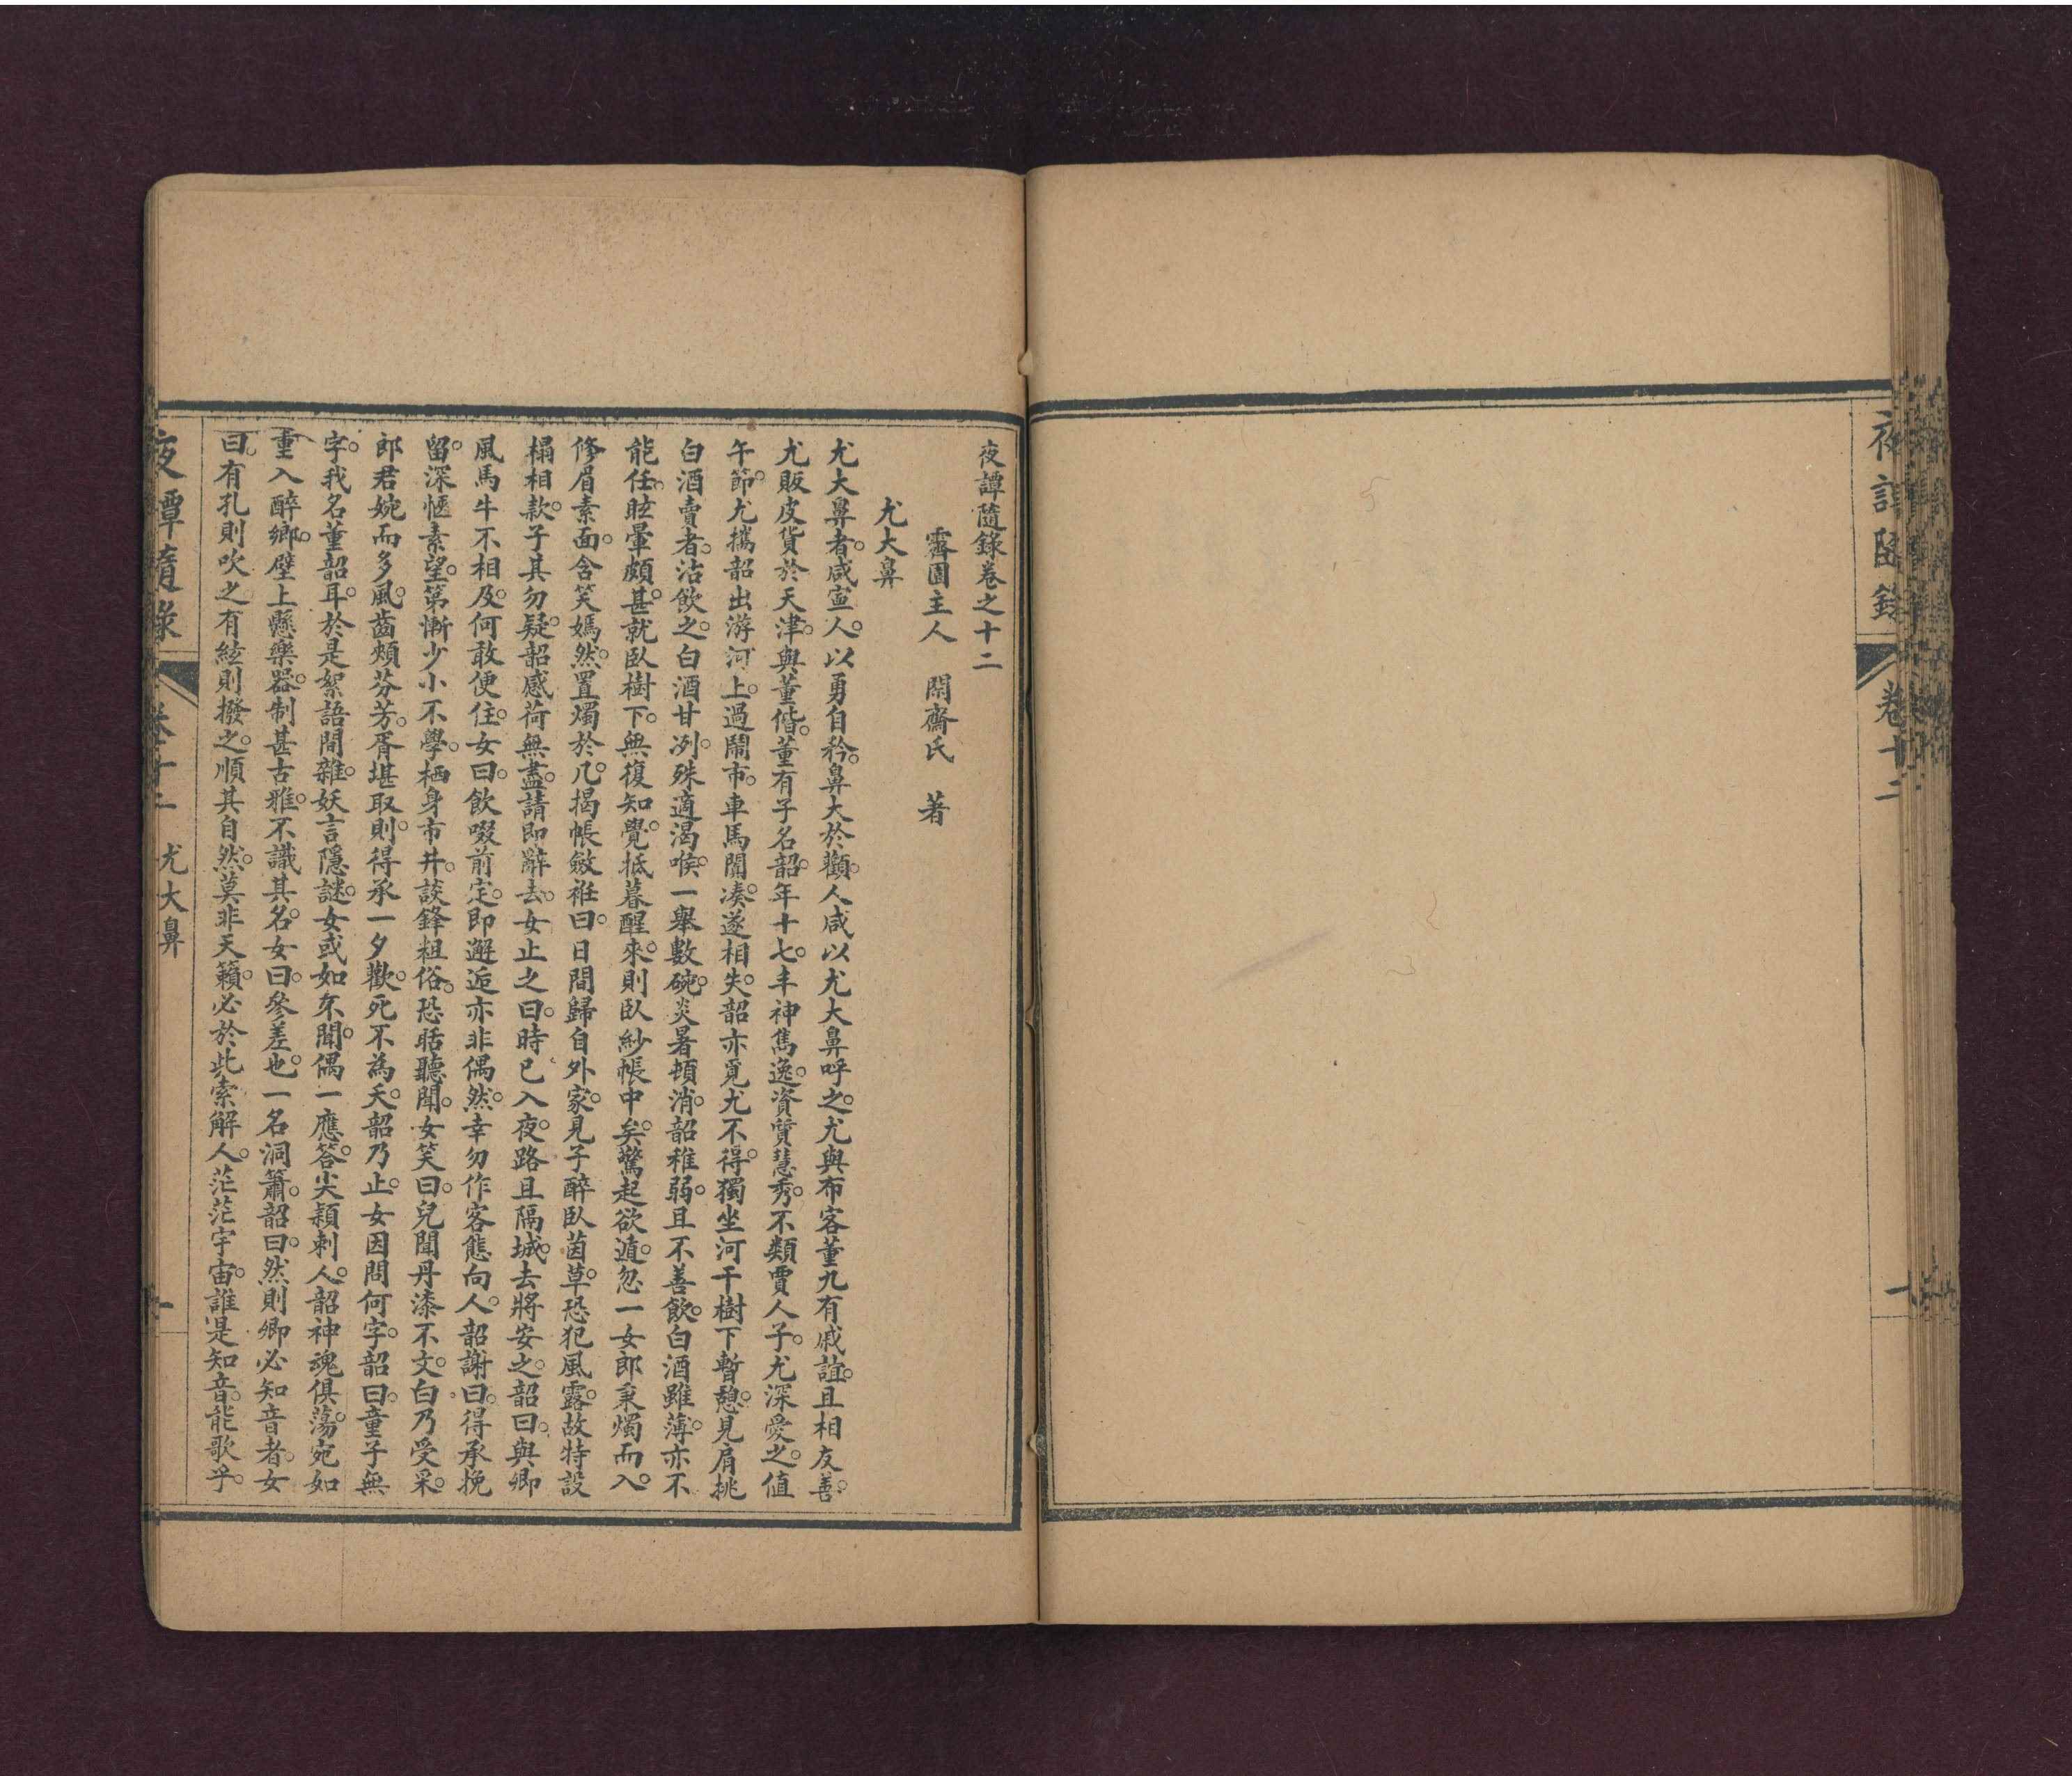 夜譚隨錄
卷十二
夜譚隨錄卷之十二
霽園主人　閑齋氏　著
尤大鼻
尤大鼻者。咸寧人。以勇自矜。鼻大於顴。人咸以尤大鼻呼之。尤與布客董九有戚誼。且相友善。
尤販皮貨於天津。與董偕。董有子名韶。年十七。丰神雋逸。資質慧秀。不類賈人子。尤深愛之。值
午節。尤攜韶出游河上。過鬧市。車馬闐湊。遂相失。韶亦覓尤不得。獨坐河干樹下暫憩。見肩挑
白酒賣者。沽飲之。白酒甘冽。殊適渴喉。一舉數碗。炎暑頓消。韶稚弱。且不善飲。白酒雖薄。亦不
能任。眩暈頗甚。就臥樹下。無復知覺。抵暮醒來。則臥紗帳中矣。驚起欲遁。忽一女郎秉燭而入。
修眉素面。含笑嫣然。置燭於几。揭帳斂袵曰。日間歸自外家。見子醉臥茵草。恐犯風露。故特設
榻相款。子其勿疑。韶感荷無盡。請即辭去。女止之曰。時已入夜。路且隔城。去將安之。韶曰。與卿
風馬牛不相及。何敢便住。女曰。飲啜前定。即邂逅亦非偶然。幸勿作客態向人。韶謝曰。得承挽
留。深愜素望。第慚少小不學。栖身市井。談鋒粗俗。恐聒聽聞。女笑曰。兒聞丹漆不文。白乃受采。
郎君婉而多風。齒頰芬芳。胥堪取則。得承一夕歡。死不為夭。韶乃止。女因問何字。韶曰。童子無
字。我名董韶耳。於是絮語間雜。妖言隱謎。女或如不聞。偶一應答。尖穎刺人。韶神魂俱蕩。宛如
重入醉鄉。壁上懸樂器。制甚古雅。不識其名。女曰。參差也。一名洞簫。韶曰。然則卿必知音者。女
曰。有孔則吹之。有絃則撥之。順其自然。莫非天籟。必於此索解人。茫茫宇宙。誰是知音。能歌乎。
夜譚隨錄
卷十二
尤大鼻
一